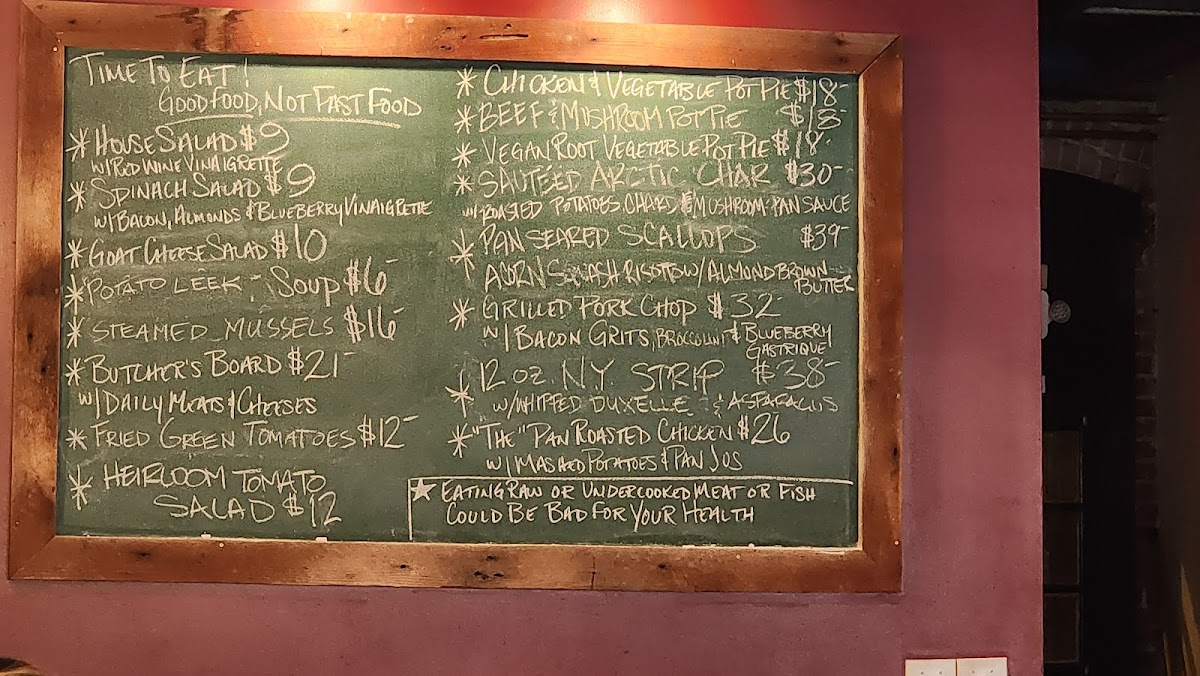 TIME TO EAT!
GOOD FOOD, NOT FAST FOOD
* HOUSE SALAD $9
W/ RED WINE VINAIGRETTE
* SPINACH SALAD $9
W/ BACON, ALMONDS & BLUEBERRY VINAIGRETTE
* GOAT CHEESE SALAD $10
* POTATO LEEK - SOUP $6-
* STEAMED MUSSELS $16-
* BUTCHER'S BOARD $21-
W/ DAILY MEATS & CHEESES
* FRIED GREEN TOMATOES $12-
* HEIRLOOM TOMATO
SALAD $12
* CHICKEN & VEGETABLE POT PIE $18-
* BEEF & MUSHROOM POT PIE $18-
* VEGAN ROOT VEGETABLE POT PIE $18-
* SAUTÉED ARCTIC CHAR $30-
W/ ROASTED POTATOES, CHARD & MUSHROOM PAN SAUCE
* PAN SEARED SCALLOPS $39-
ACORN SQUASH RISOTTO W/ ALMOND BROWN
BUTTER
* GRILLED PORK CHOP $32-
W/ BACON GRITS, BROCCOLINI & BLUEBERRY
GASTRIQUE
* 12 OZ. N.Y. STRIP $38-
W/ WHIPPED DUXELLE & ASPARAGUS
* "THE" PAN ROASTED CHICKEN $26
W/ MASHED POTATOES & PAN JUS
★ EATING RAW OR UNDERCOOKED MEAT OR FISH
COULD BE BAD FOR YOUR HEALTH